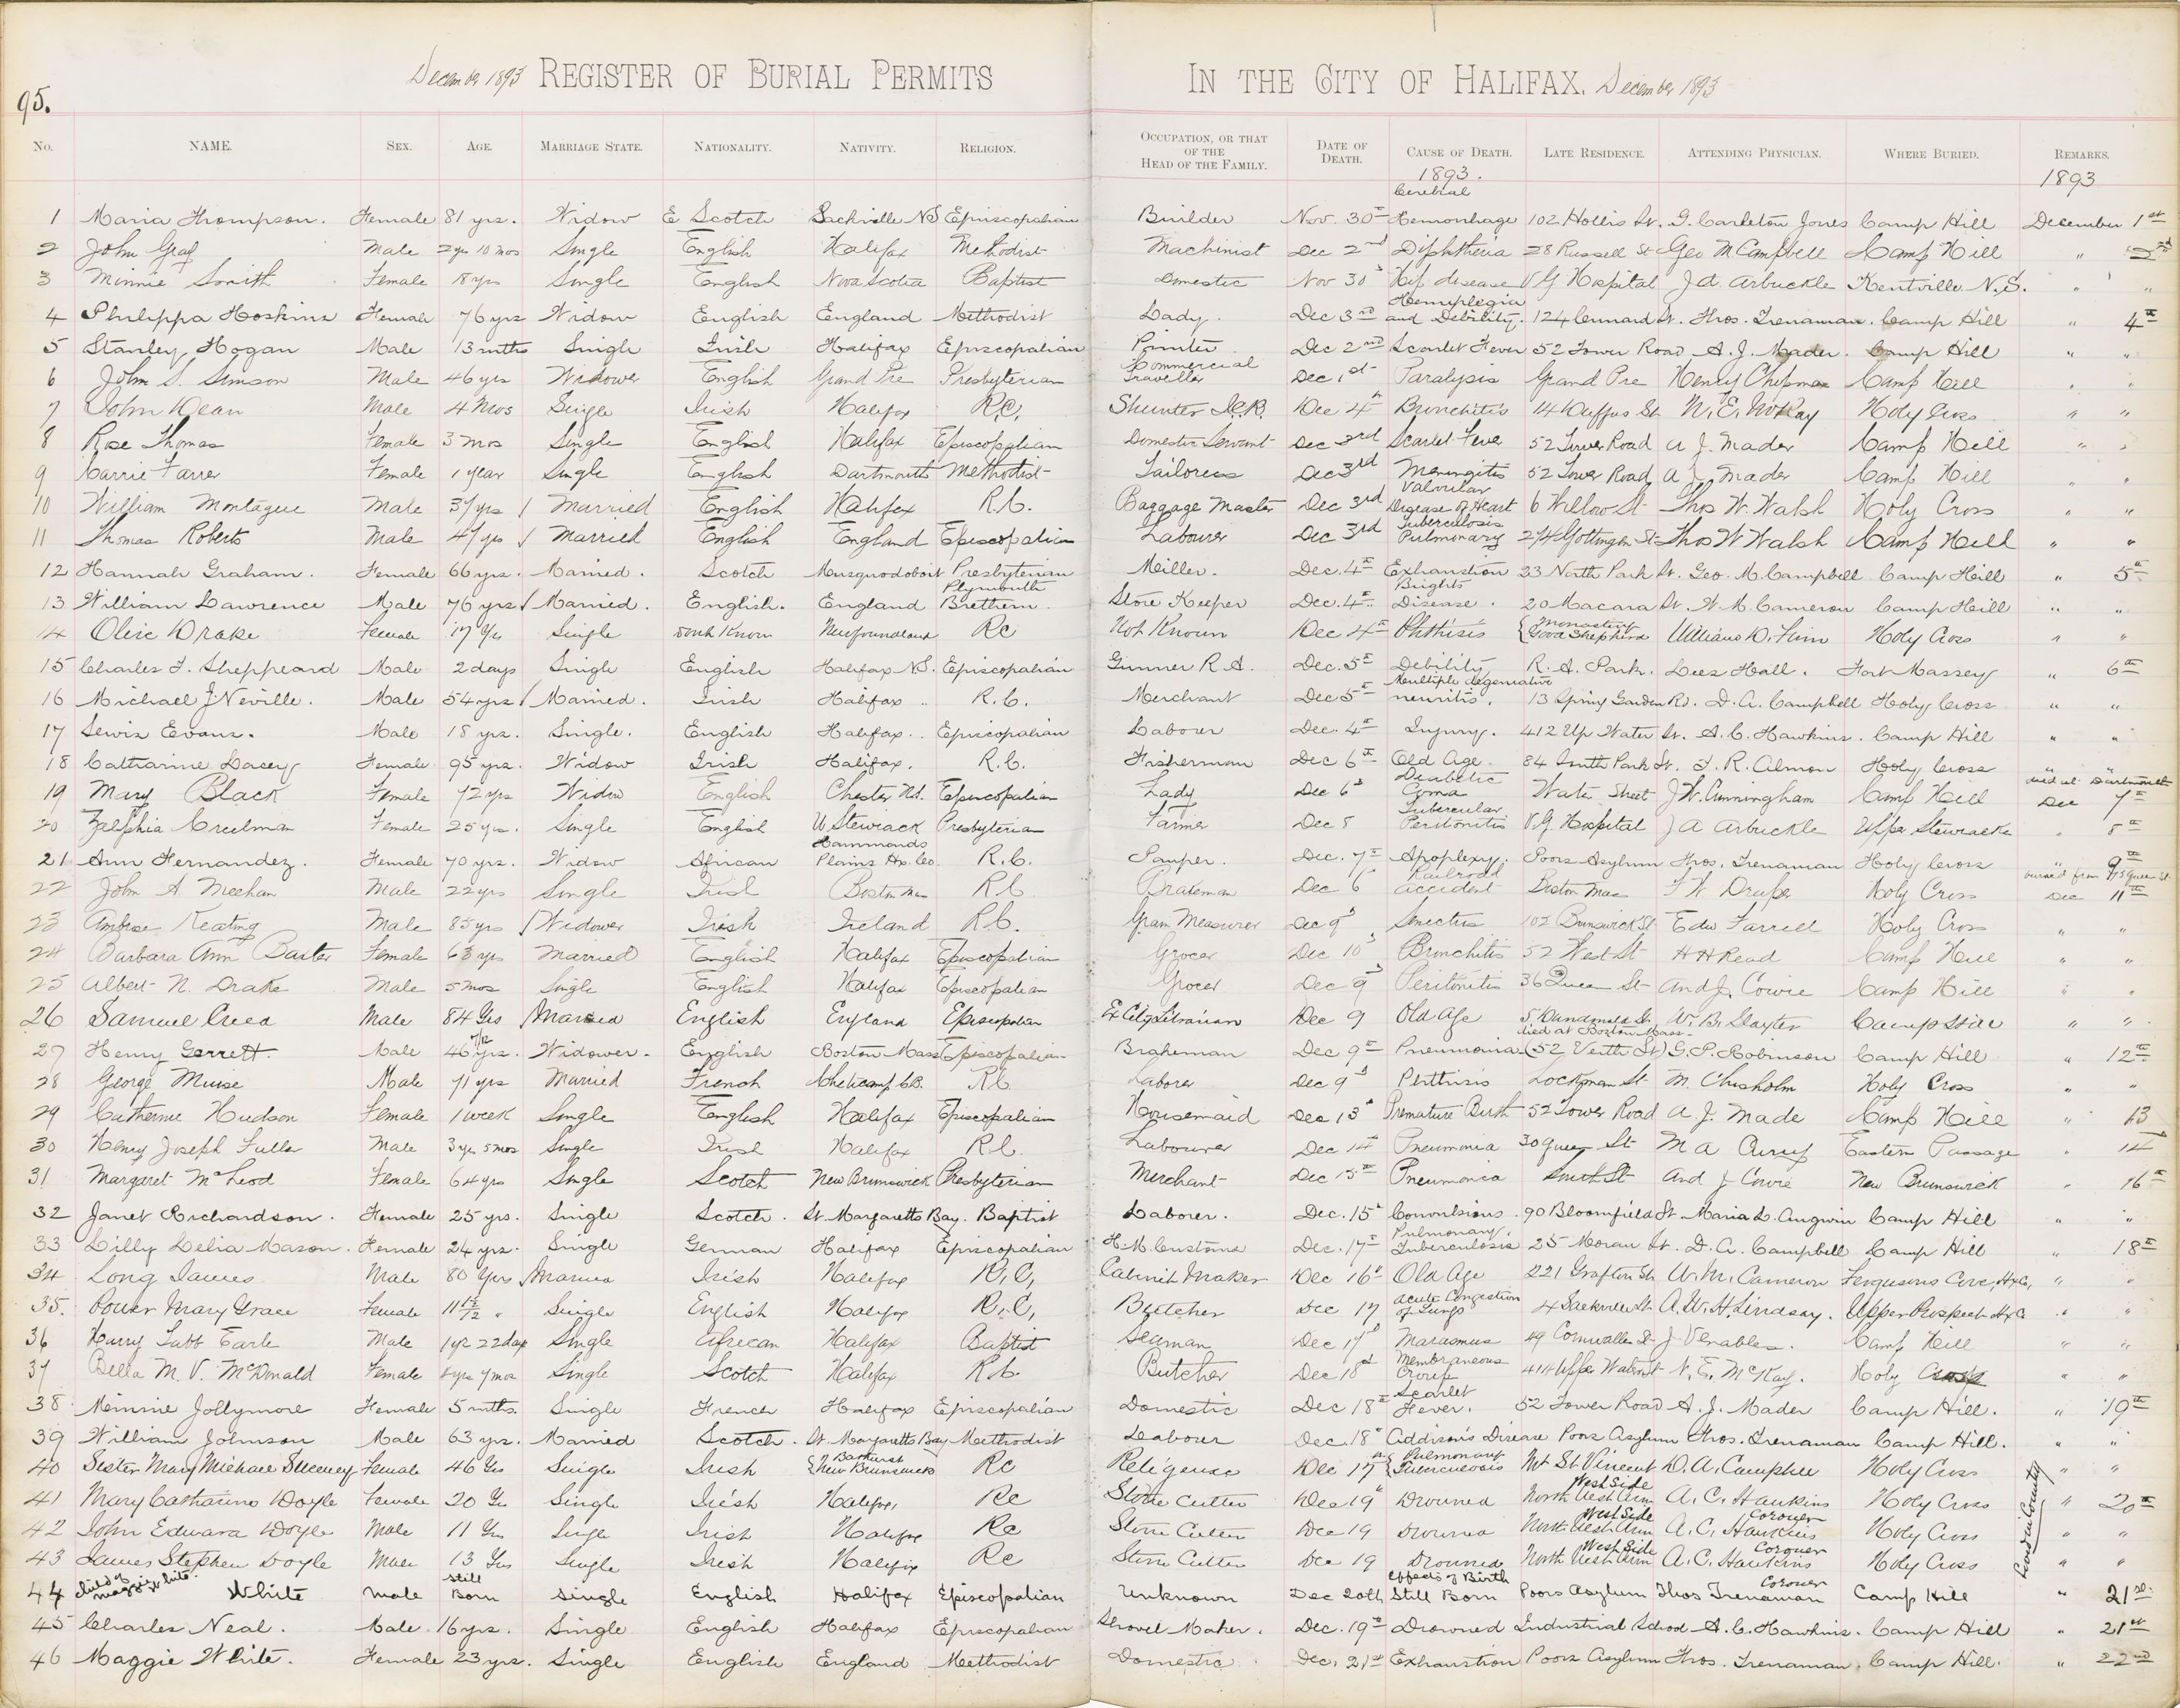 95.
December 1893 REGISTER OF BURIAL PERMITS IN THE CITY OF HALIFAX. December 1893
No. NAME. SEX. AGE. MARRIAGE STATE. NATIONALITY. NATIVITY. RELIGION. OCCUPATION, OR THAT OF THE HEAD OF THE FAMILY. DATE OF DEATH. CAUSE OF DEATH. LATE RESIDENCE. ATTENDING PHYSICIAN. WHERE BURIED. REMARKS.
1893. 1893
1 Maria Thompson. Female 81 yrs. Widow E Scotch Sackville NS Episcopalian Builder Nov. 30th Cerebral Hemorrhage 102 Hollis St. G. Carleton Jones Camp Hill December 1st
2 John Gray Male 2 yrs 10 mos Single English Halifax Methodist Machinist Dec 2nd Diphtheria 28 Russell St Geo M Campbell Camp Hill " 2nd
3 Minnie Smith Female 18 yrs Single English Nova Scotia Baptist Domestic Nov 30 Hip disease V G Hospital J A Arbuckle Kentville N.S. " "
4 Philippa Hoskins Female 76 yrs Widow English England Methodist Lady. Dec 3rd Hemiplegia and Debility. 124 Cunnard St. Thos. Trenaman. Camp Hill " 4th
5 Stanley Hogan Male 13 mths Single Irish Halifax Episcopalian Printer Dec 2nd Scarlet Fever 52 Tower Road A. J. Mader. Camp Hill " "
6 John S. Simson Male 46 yrs Widower English Grand Pre Presbyterian Commercial Traveller Dec 1st Paralysis Grand Pre Henry Chipman Camp Hill " "
7 John Dean Male 4 Mos Single Irish Halifax R.C. Shunter I.C.R. Dec 4th Bronchitis 14 Duffus St N. E. McKay Holy Cross " "
8 Rose Thomas Female 3 mos Single English Halifax Episcopalian Domestic Servant Dec 3rd Scarlet Fever 52 Tower Road A J. Mader Camp Hill " "
9 Carrie Farrer Female 1 year Single English Dartmouth Methodist Tailoress Dec 3rd Meningitis 52 Tower Road A J Mader Camp Hill " "
10 William Montague Male 37 yrs / Married English Halifax R.C. Baggage Master Dec 3rd Valvular Disease of Heart 6 Willow St Thos W. Walsh Holy Cross " "
11 Thomas Roberts Male 47 yrs / Married English England Episcopalian Labourer Dec 3rd Tuberculosis Pulmonary 274 Gottingen St Thos W Walsh Camp Hill " "
12 Hannah Graham. Female 66 yrs. Married. Scotch Musquodoboit Presbyterian Miller. Dec. 4th Exhaustion 33 North Park St. Geo. M. Campbell Camp Hill " 5th
13 William Lawrence Male 76 yrs / Married. English. England Plymouth Brethern. Store Keeper Dec. 4th Brights Disease. 20 Macara St. W. M. Cameron Camp Hill " "
14 Olive Drake Female 17 Yrs Single dont Know Newfoundland RC Not Known Dec 4th Phthisis { Monastery Good Shepherd William D. Finn Holy Cross " "
15 Charles F. Sheppeard Male 2 days Single English Halifax N.S. Episcopalian Gunner R A. Dec. 5th Debility R. A. Park. Lees Hall. Fort Massey " 6th
16 Michael J. Neville. Male 54 yrs / Married. Irish Halifax R.C. Merchant Dec 5th Multiple degenerative neuritis. 13 Spring Garden Rd. D. A. Campbell Holy Cross " "
17 Lewis Evans. Male 18 yrs. Single. English Halifax Episcopalian Labourer Dec. 4th Injury. 412 Up Water St. A. C. Hawkins. Camp Hill " "
18 Catharine Dacey Female 95 yrs. Widow Irish Halifax. R.C. Fisherman Dec 6th Old Age. 84 South Park St. T. R. Almon Holy Cross " "
19 Mary Black Female 72 yrs Widow English Chester N.S. Episcopalian Lady Dec 6th Diabetic Coma Water Street J W. Cunningham Camp Hill died at Dartmouth Dec 7th
20 Zelphia Creelman Female 25 yrs. Single English U Stewiack Presbyterian Farmer Dec 8 Tubercular Peritonitis V G Hospital J A Arbuckle Upper Stewiacke " 8th
21 Ann Fernandez. Female 70 yrs. Widow African Hammonds Plains Hx. Co. R.C. Pauper. Dec. 7th Apoplexy. Poors Asylum Thos. Trenaman Holy Cross " 9th
22 John A Meehan Male 22 yrs Single Irish Boston Mas R C Brakeman Dec 6 Railroad accident Boston Mas F W Draper Holy Cross buried from 75 Queen St. Dec 11th
23 Ambrose Keating Male 85 yrs / Widower Irish Ireland R.C. Grain Measurer Dec 9 102 Brunswick St Edw Farrell Holy Cross " "
24 Barbara Ann Baxter Female 63 yrs Married English Halifax Episcopalian Grocer Dec 10 Bronchitis 52 West St H H Read Camp Hill " "
25 Albert N. Drake Male 5 mos Single English Halifax Episcopalian Grocer Dec 9 Peritonitis 36 Queen St And J. Cowie Camp Hill " "
26 Samuel Creed Male 84 Yrs / Married English England Episcopalian Ex City Librarian Dec 9 Old Age 5 Dundonald St. W. B. Slayter Camp Hill " "
27 Henry Gerrett. Male 46 7/12 yrs. Widower. English Boston Mass Episcopalian Brakeman Dec 9th Pneumonia died at Boston Mass (52 Veith St) G. P. Robinson Camp Hill " 12th
28 George Muise Male 71 yrs Married French Cheticamp C.B. R C Laborer Dec 9 Phthisis Lockman St M. Chisholm Holy Cross " "
29 Catherine Hudson Female 1 week Single English Halifax Episcopalian Housemaid Dec 13 Premature Birth 52 Tower Road A. J. Made Camp Hill " 13
30 Henry Joseph Fuller Male 3 yrs 5 mos Single Irish Halifax R.C. Labourer Dec 14 Pneumonia 30 Quey St M A Curry Eastern Passage " 14
31 Margaret McLeod Female 64 yrs Single Scotch New Brunswick Presbyterian Merchant Dec 15th Pneumonia South St And J Cowie New Brunswick " 16th
32 Janet Richardson. Female 25 yrs. Single Scotch. St. Margaretts Bay. Baptist Laborer. Dec. 15th Convulsions. 90 Bloomfield St. Maria L. Angwin Camp Hill " "
33 Lilly Delia Mason. Female 24 yrs. Single German Halifax Episcopalian H. M. Customs Dec. 17th Pulmonary. Tuberculosis 25 Moran St. D. A. Campbell Camp Hill " 18th
34 Long James Male 80 Yrs / Married Irish Halifax R.C. Cabinet Maker Dec 16th Old Age 221 Grafton St. W. M. Cameron Fergusons Cove, Hx Co, " "
35. Power Mary Grace Female 11/12 " Single English Halifax R.C. Butcher Dec 17 Acute Congestion of Lungs 4 Sackville St. A. W. H. Lindsay. Upper Prospect Hx C " "
36 Harry Tabb Earle Male 1 yr 22 days Single African Halifax Baptist Seaman Dec 17 Marasmus 49 Cornwallis St J Venables. Camp Hill " "
37 Bella M. V. McDonald Female 8 yrs 7 mos Single Scotch Halifax R.C. Butcher Dec 18 Membraneous Croup 414 Upper Water St N. E. McKay. Holy Cross " "
38 Minnie Jollymore Female 5 mths. Single French Halifax Episcopalian Domestic Dec 18th Scarlet Fever. 52 Tower Road A. J. Mader Camp Hill. " 19th
39 William Johnson Male 63 yrs. Married Scotch. St. Margaretts Bay Methodist Labour Dec. 18th Addison's Disease Poors Asylum Thos. Trenaman Camp Hill. " "
40 Sister Mary Michael Sweeney Female 46 Yrs Single Irish { Bathurst New Brunswick RC Religeuse Dec 17th { Pulmonary Tuberculosis Mt St Vincent D. A. Campbell Holy Cross " "
41 Mary Catharine Doyle Female 20 Yrs Single Irish Halifax, RC Stone Cutter Dec 19th Drowned West Side North West Arm A. C. Hawkins Coroner Holy Cross " 20th
42 John Edward Doyle Male 11 Yrs Single Irish Halifax RC Stone Cutter Dec 19 Drowned West Side North West Arm A. C. Hawkins Coroner Holy Cross " "
43 James Stephen Doyle Male 13 Yrs Single Irish Halifax RC Stone Cutter Dec 19 Drowned West Side North West Arm A. C. Hawkins Coroner Holy Cross " "
44 child of Maggie White. White Male Still Born Single English Halifax Episcopalian Unknown Dec 20th effects of Birth Still Born Poors Asylum Thos Trenaman Camp Hill " 21st
45 Charles Neal. Male 16 yrs. Single English Halifax Episcopalian Shovel Maker. Dec. 19th Drowned Industrial School A. C. Hawkins. Camp Hill " 21st
46 Maggie White. Female 23 yrs. Single English England Methodist Domestic Dec. 21st Exhaustion Poors Asylum Thos. Trenaman. Camp Hill. " 22nd